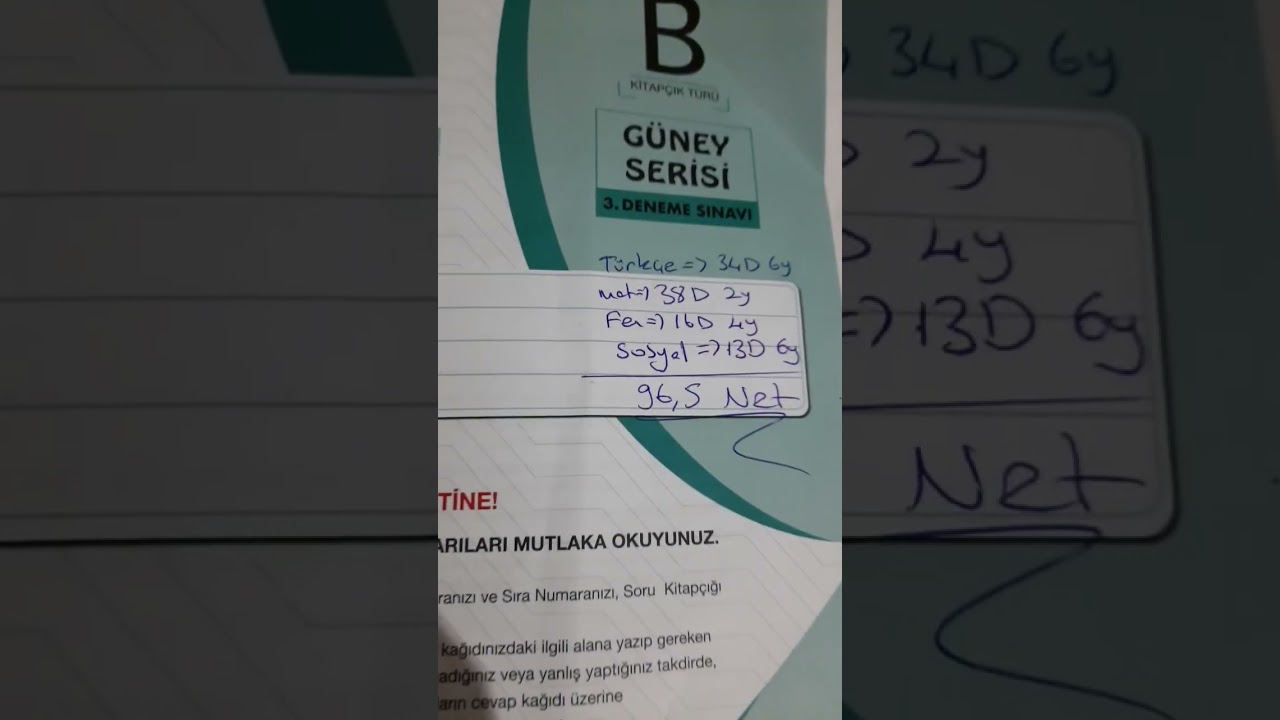 B
KİTAPÇIK TÜRÜ
GÜNEY
SERİSİ
3. DENEME SINAVI
Türkçe => 34D 6y
Mat => 38D 2y
Fen => 16D 4y
Sosyal => 13D 6y
96,5 Net
TİNE!
ARILARI MUTLAKA OKUYUNUZ.
ranızı ve Sıra Numaranızı, Soru Kitapçığı
kağıdınızdaki ilgili alana yazıp gereken
adığınız veya yanlış yaptığınız takdirde,
arın cevap kağıdı üzerine
34D 6y
2y
4y
=> 13D 6y
Net